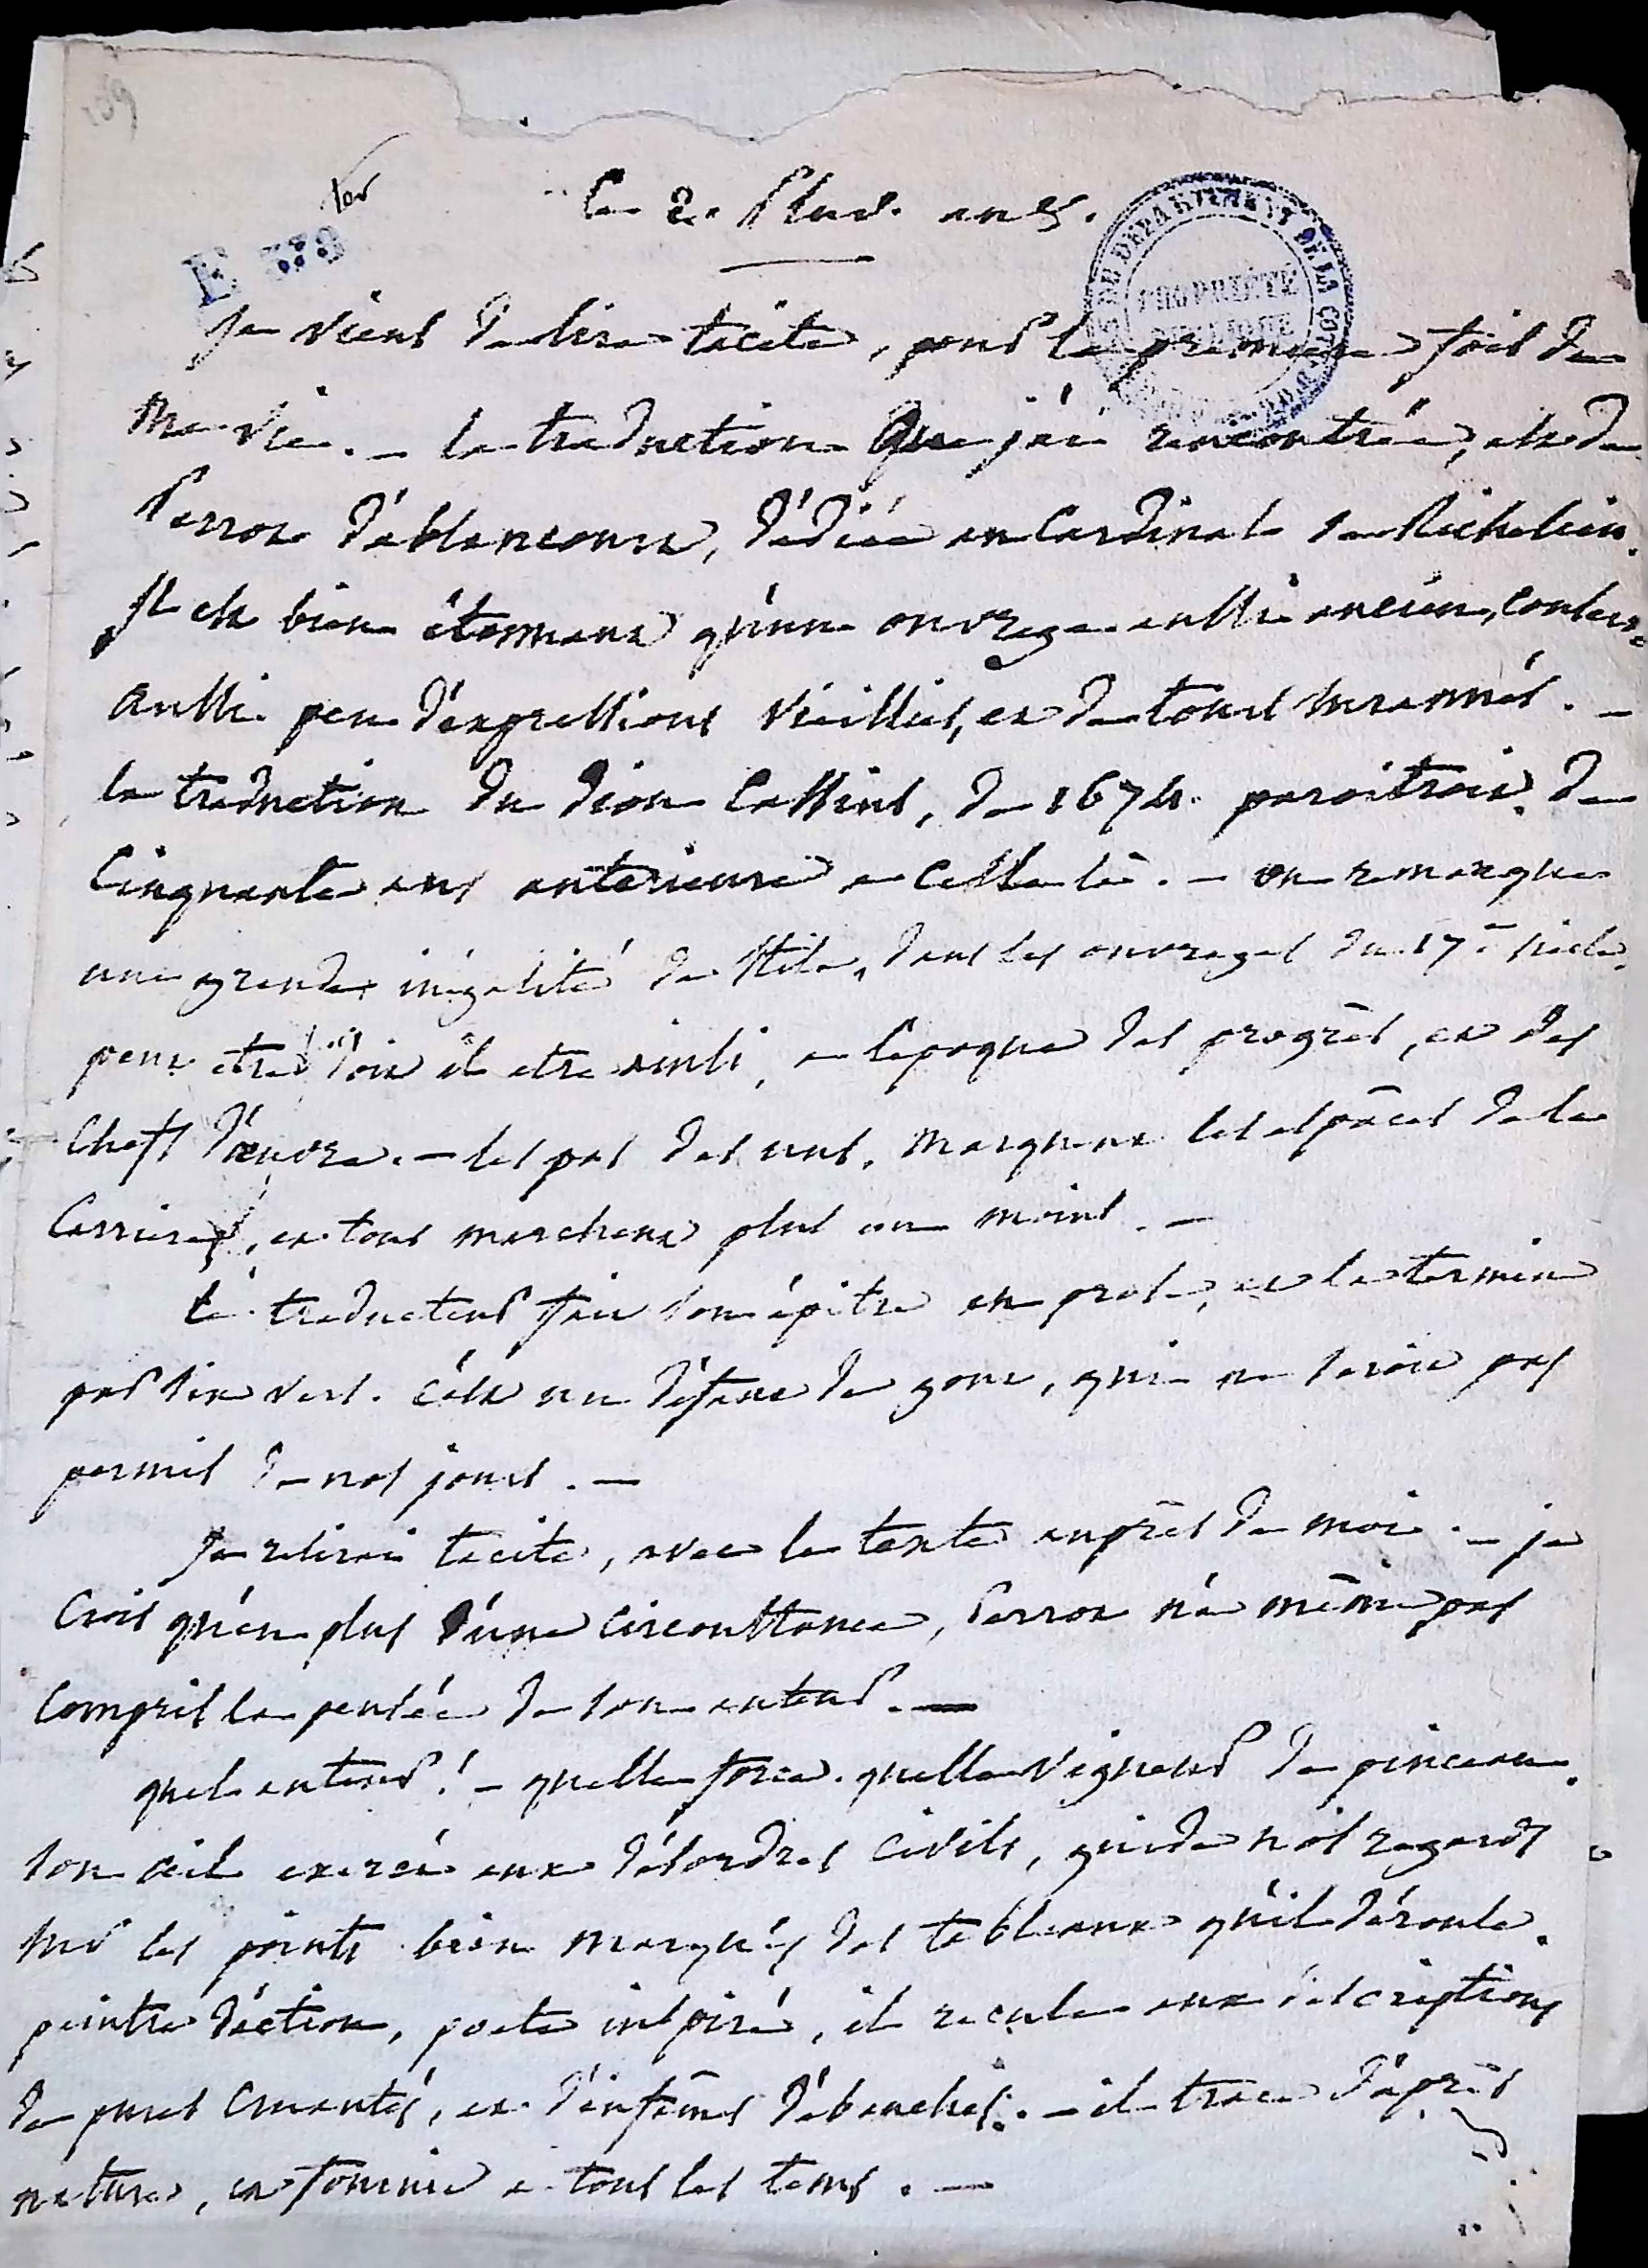 109
ter
E 378
Le 2. Pluv. an 5.
DU DÉPARTEMENT DE LA COTE
PROPRIÉTÉ PUBLIQUE
Je viens de lire tacite, pour la premiere fois de
ma vie. — la traduction que j'ai rencontrée, est de
Perrot d'ablancourt, dédiée au Cardinal de Richelieu.
Il est bien étonnant qu'un ouvrage aussi ancien, contienne
aussi peu d'expressions vieillies, et de tours surannés. —
la traduction du dion Cassius, de 1674. paroitroit de
cinquante ans anterieure a celle la. — on remarque
une grande inégalité de stile, dans les ouvrages du 17e siecle.
peut etre doit il etre ainsi, a l'epoque des progrès, et des
chefs d'œuvre. — les pas des uns, marquent les espâces de la
Carriere, et tous marchent plus ou moins. —
Le traducteur fait son épitre en prose, et la termine
par dix vers. c'est un défaut de gout, qui ne seroit pas
permis de nos jours. —
Je relirai tacite, avec le texte auprès de moi. — je
crois qu'en plus d'une circonstance, Perrot n'a même pas
compris la pensée de son auteur. —
quel auteur! — quelle force. quelle vigueur de pinceau.
son œil exercé aux désordres civils, guide nos regards
sur les points bien marqués des tableaux qu'il déroule.
peintre d'action, poete inspiré, il recule aux descriptions
de pures cruautés, et d'infâmes débauches. — il trace d'après
nature, et fournit a tous les tems. —